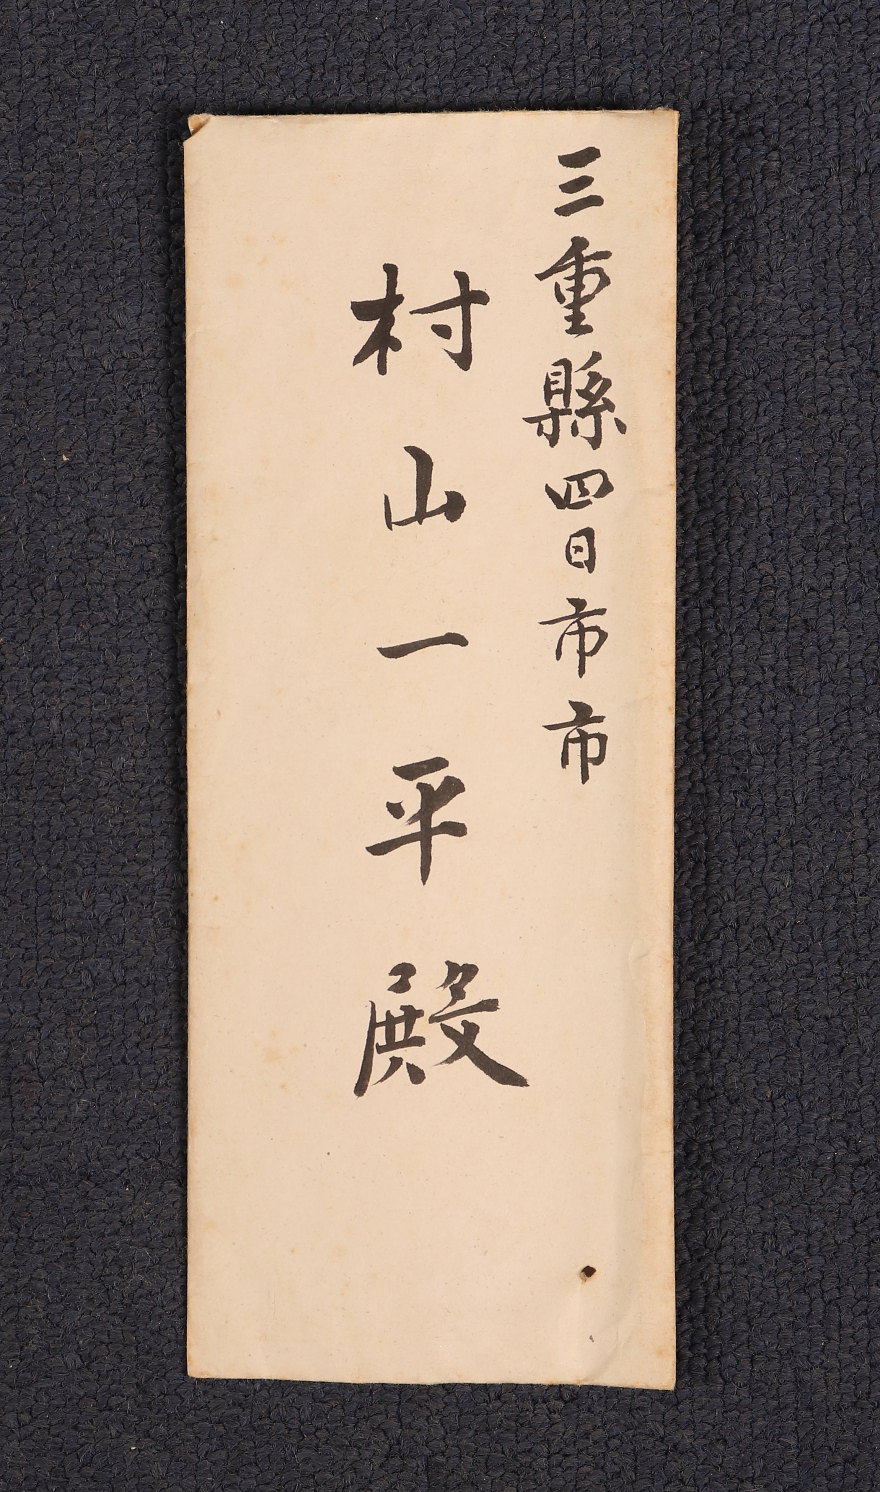 三重縣四日市市
村山一平殿